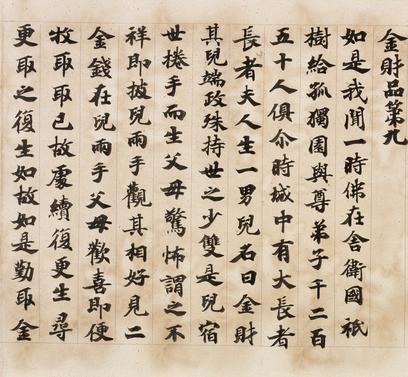 金財品第九
如是我聞一時佛在舍衛國祇
樹給孤獨園與尊弟子千二百
五十人俱尒時城中有大長者
長者夫人生一男兒名曰金財
其兒端政殊持世之少雙是兒宿
世捲手而生父母驚怖謂之不
祥即披兒兩手觀其相好見二
金錢在兒兩手父母歡喜即便
牧取取已故處續復更生尋
更取之復生如故如是勤取金